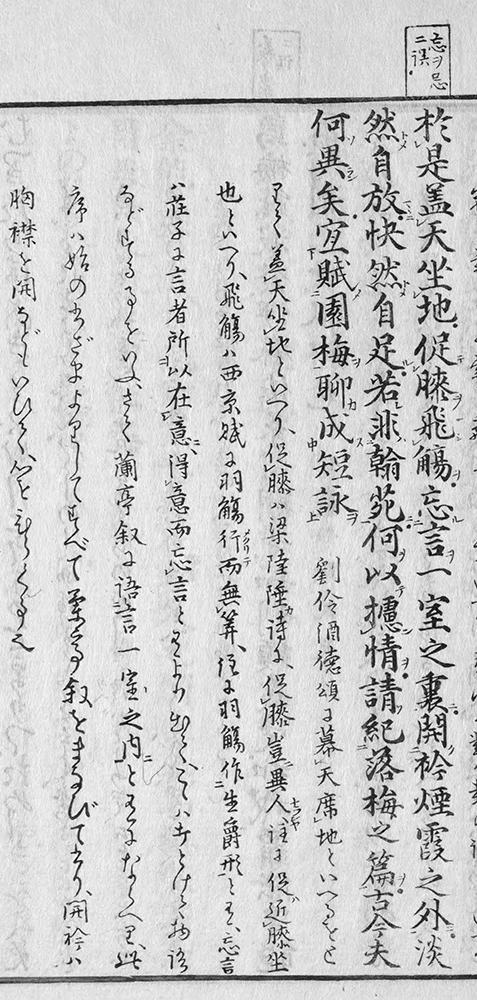 忘ヲ忌
ニ誤
於是盖天坐地促膝飛觴忘言一室之裏開衿煙霞之外淡
然自放快然自足若非翰苑何以攄情請紀落梅之篇古今夫
何異矣宜賦園梅聊成短詠 劉伶酒徳頌に幕天席地といへるをと
りて、盖天坐地といへり、促膝ハ梁陸陲詩に、促膝豈異人、注に促近膝坐
也といへり、飛觴ハ西京賦に羽觴行而無筭、注に羽觴作生爵形と有、忘言
ハ莊子に言者所以在意、得意而忘言とあるより出て、こゝハ打とけて物語
などする事をいふ、さて蘭亭叙に語言一室之内と有にならへり、此
序ハ始の書ざまよりしてすべて叙をまなびて、開衿ハ
胸襟を開などもいひて、心をひらくる也